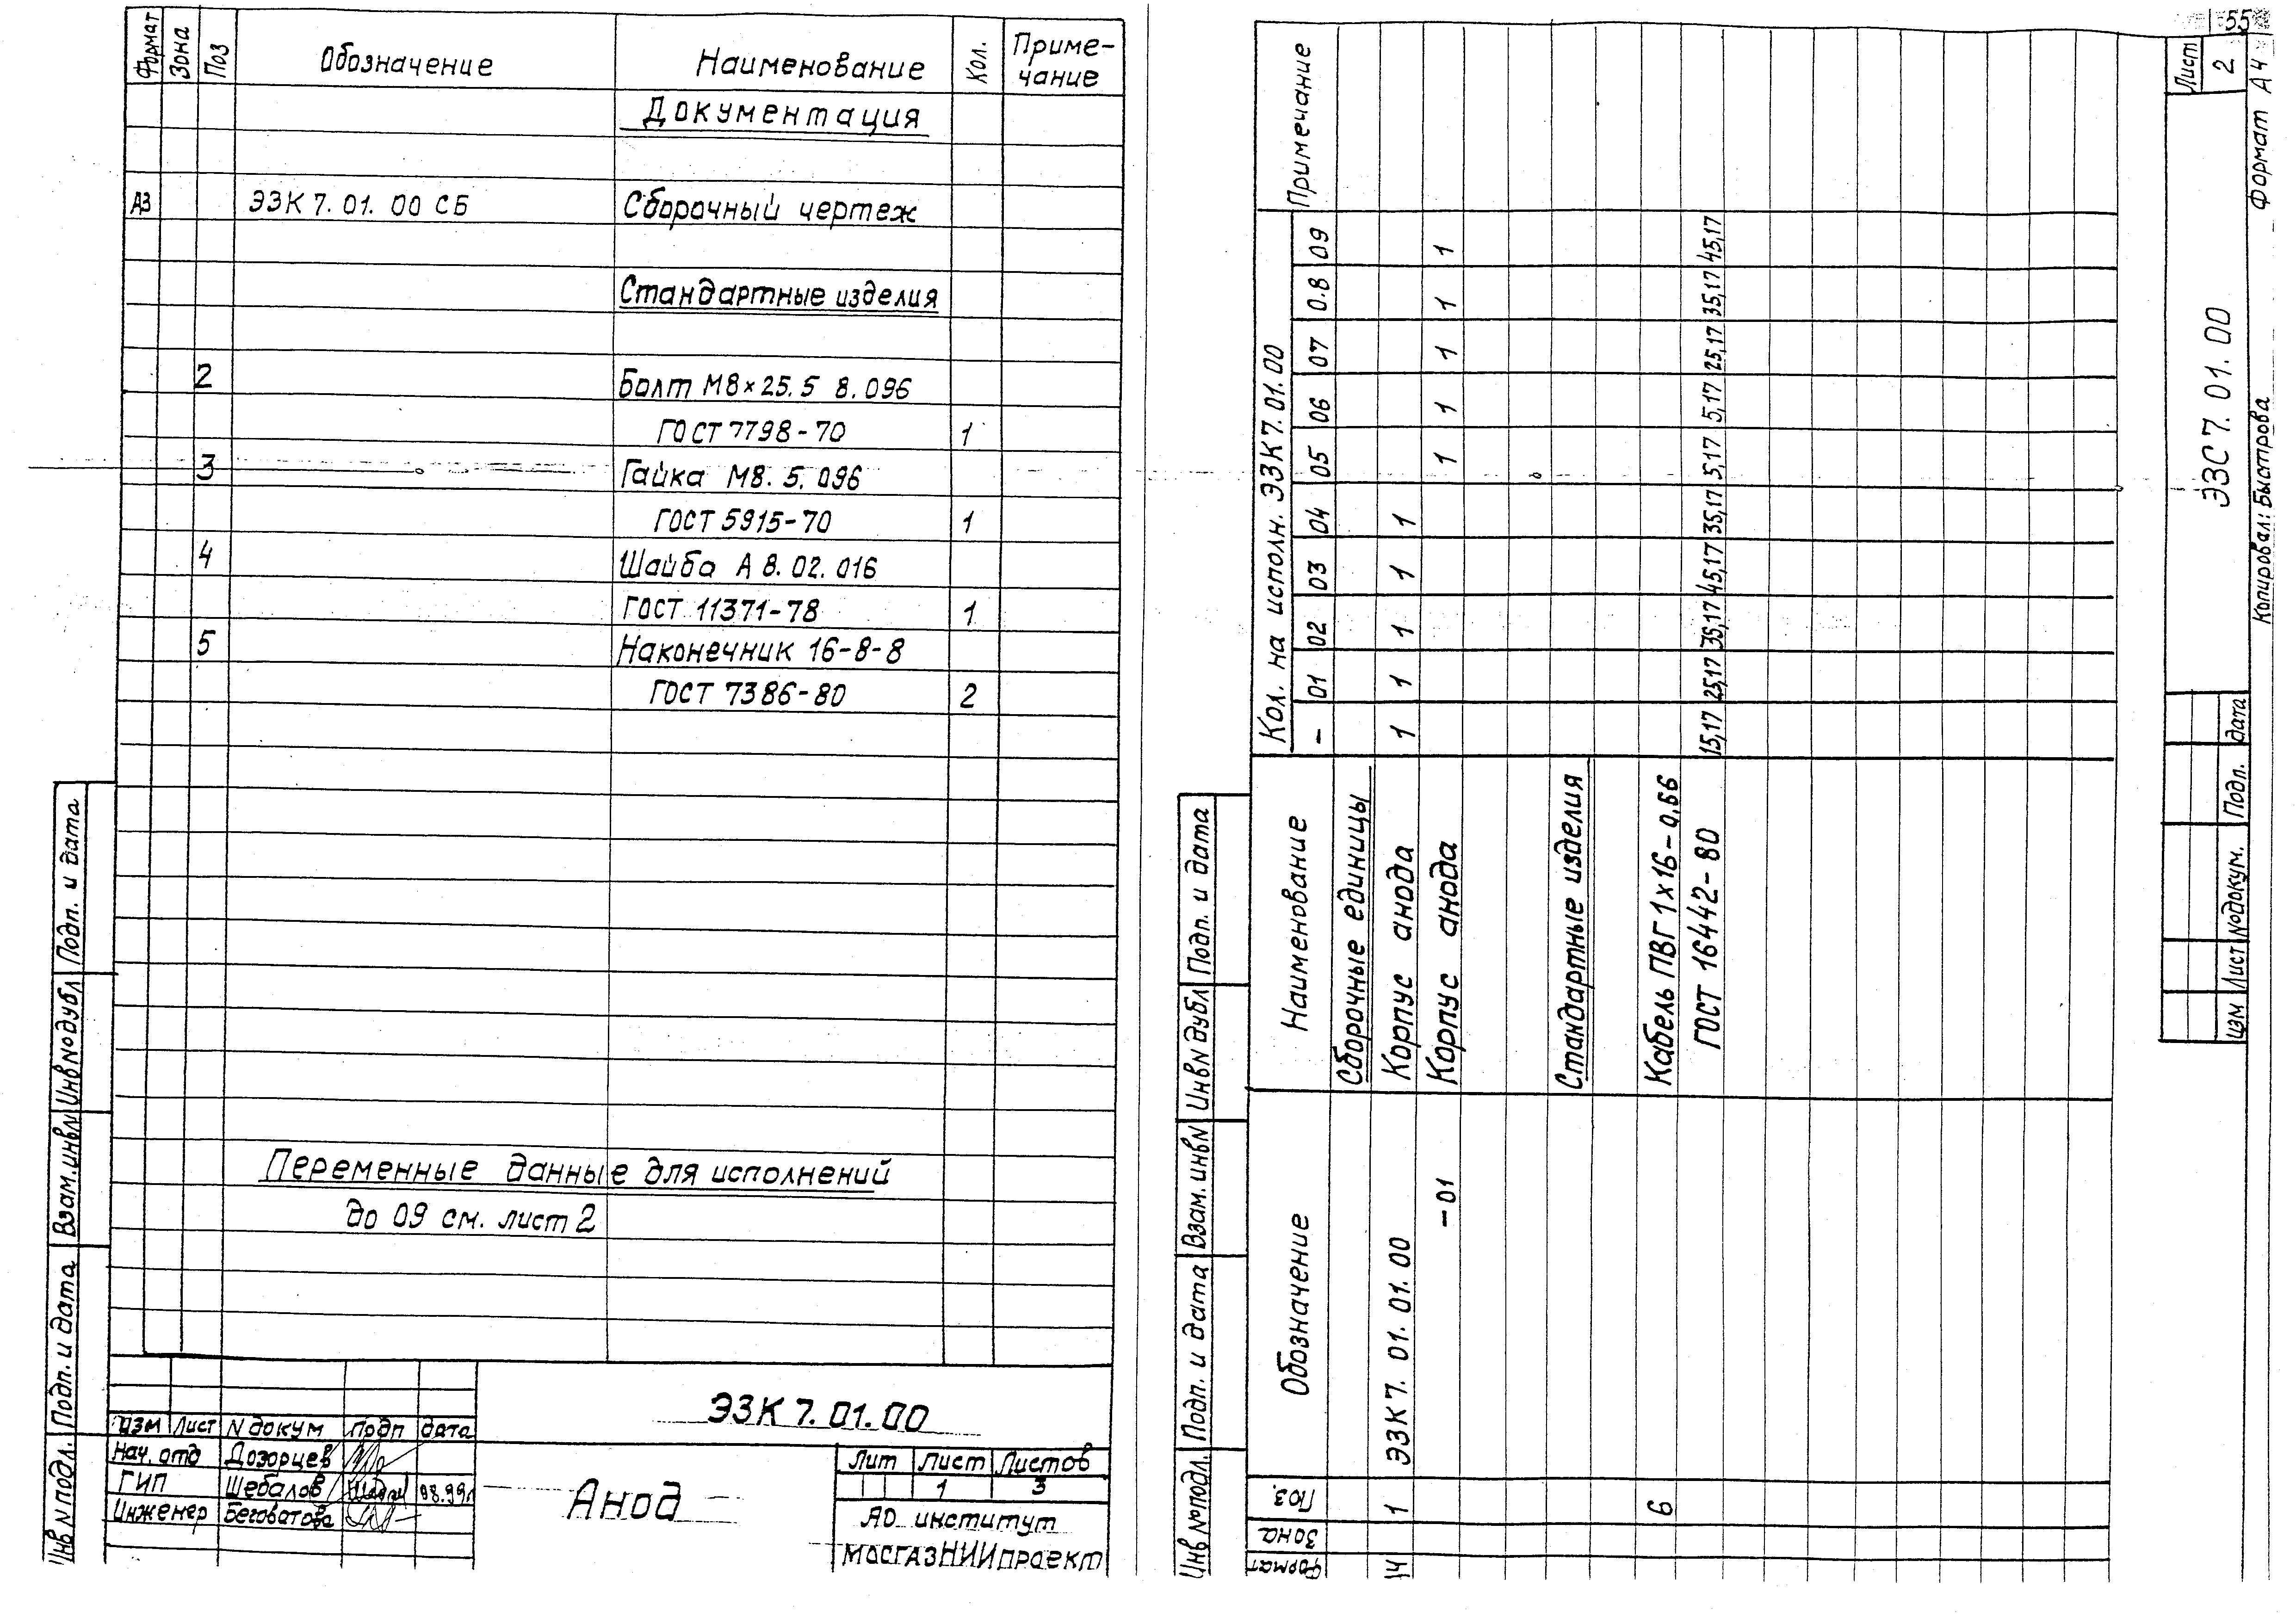 Формат Зона Поз Обозначение Наименование Кол. Приме-
чание
Документация
А3 ЭЗК 7. 01. 00 СБ Сборочный чертеж
Стандартные изделия
2 Болт М8×25.5 8.096
ГОСТ 7798-70 1
3 Гайка М8. 5. 096
ГОСТ 5915-70 1
4 Шайба А 8. 02. 016
ГОСТ 11371-78 1
5 Наконечник 16-8-8
ГОСТ 7386-80 2
Переменные данные для исполнений
до 09 см. лист 2
Инв N подл. Подп. и дата Взам. инв N Инв N дубл Подп. и дата
ЭЗК 7. 01. 00
Изм Лист N докум Подп дата
Нач. отд Дозорцев
ГИП Шебалов
Инженер Беговатова
Анод
Лит Лист Листов
1 3
АО институт
МосгазНИИпроект
55
Формат Зона Поз. Обозначение Наименование Кол. на исполн. ЭЗК 7. 01. 00 Примечание
– 01 02 03 04 05 06 07 0.8 09
Сборочные единицы
А4 1 ЭЗК 7. 01. 01. 00 Корпус анода 1 1 1 1 1
– 01 Корпус анода 1 1 1 1 1
Стандартные изделия
6 Кабель ПВГ 1х16 – 0,66
ГОСТ 16442 – 80 15,17 25,17 35,17 45,17 35,17 5,17 5,17 25,17 35,17 45,17
Инв № подл. Подп. и дата Взам. инв N Инв N дубл Подп. и дата
Изм Лист № докум. Подп. Дата
ЭЗС 7. 01. 00
Лист
2
Копировал: Быстрова Формат А4